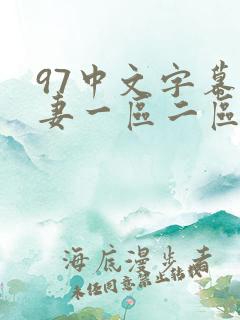 97中文字幕
妻一區二區
海底漫步者
未经同意禁止转载